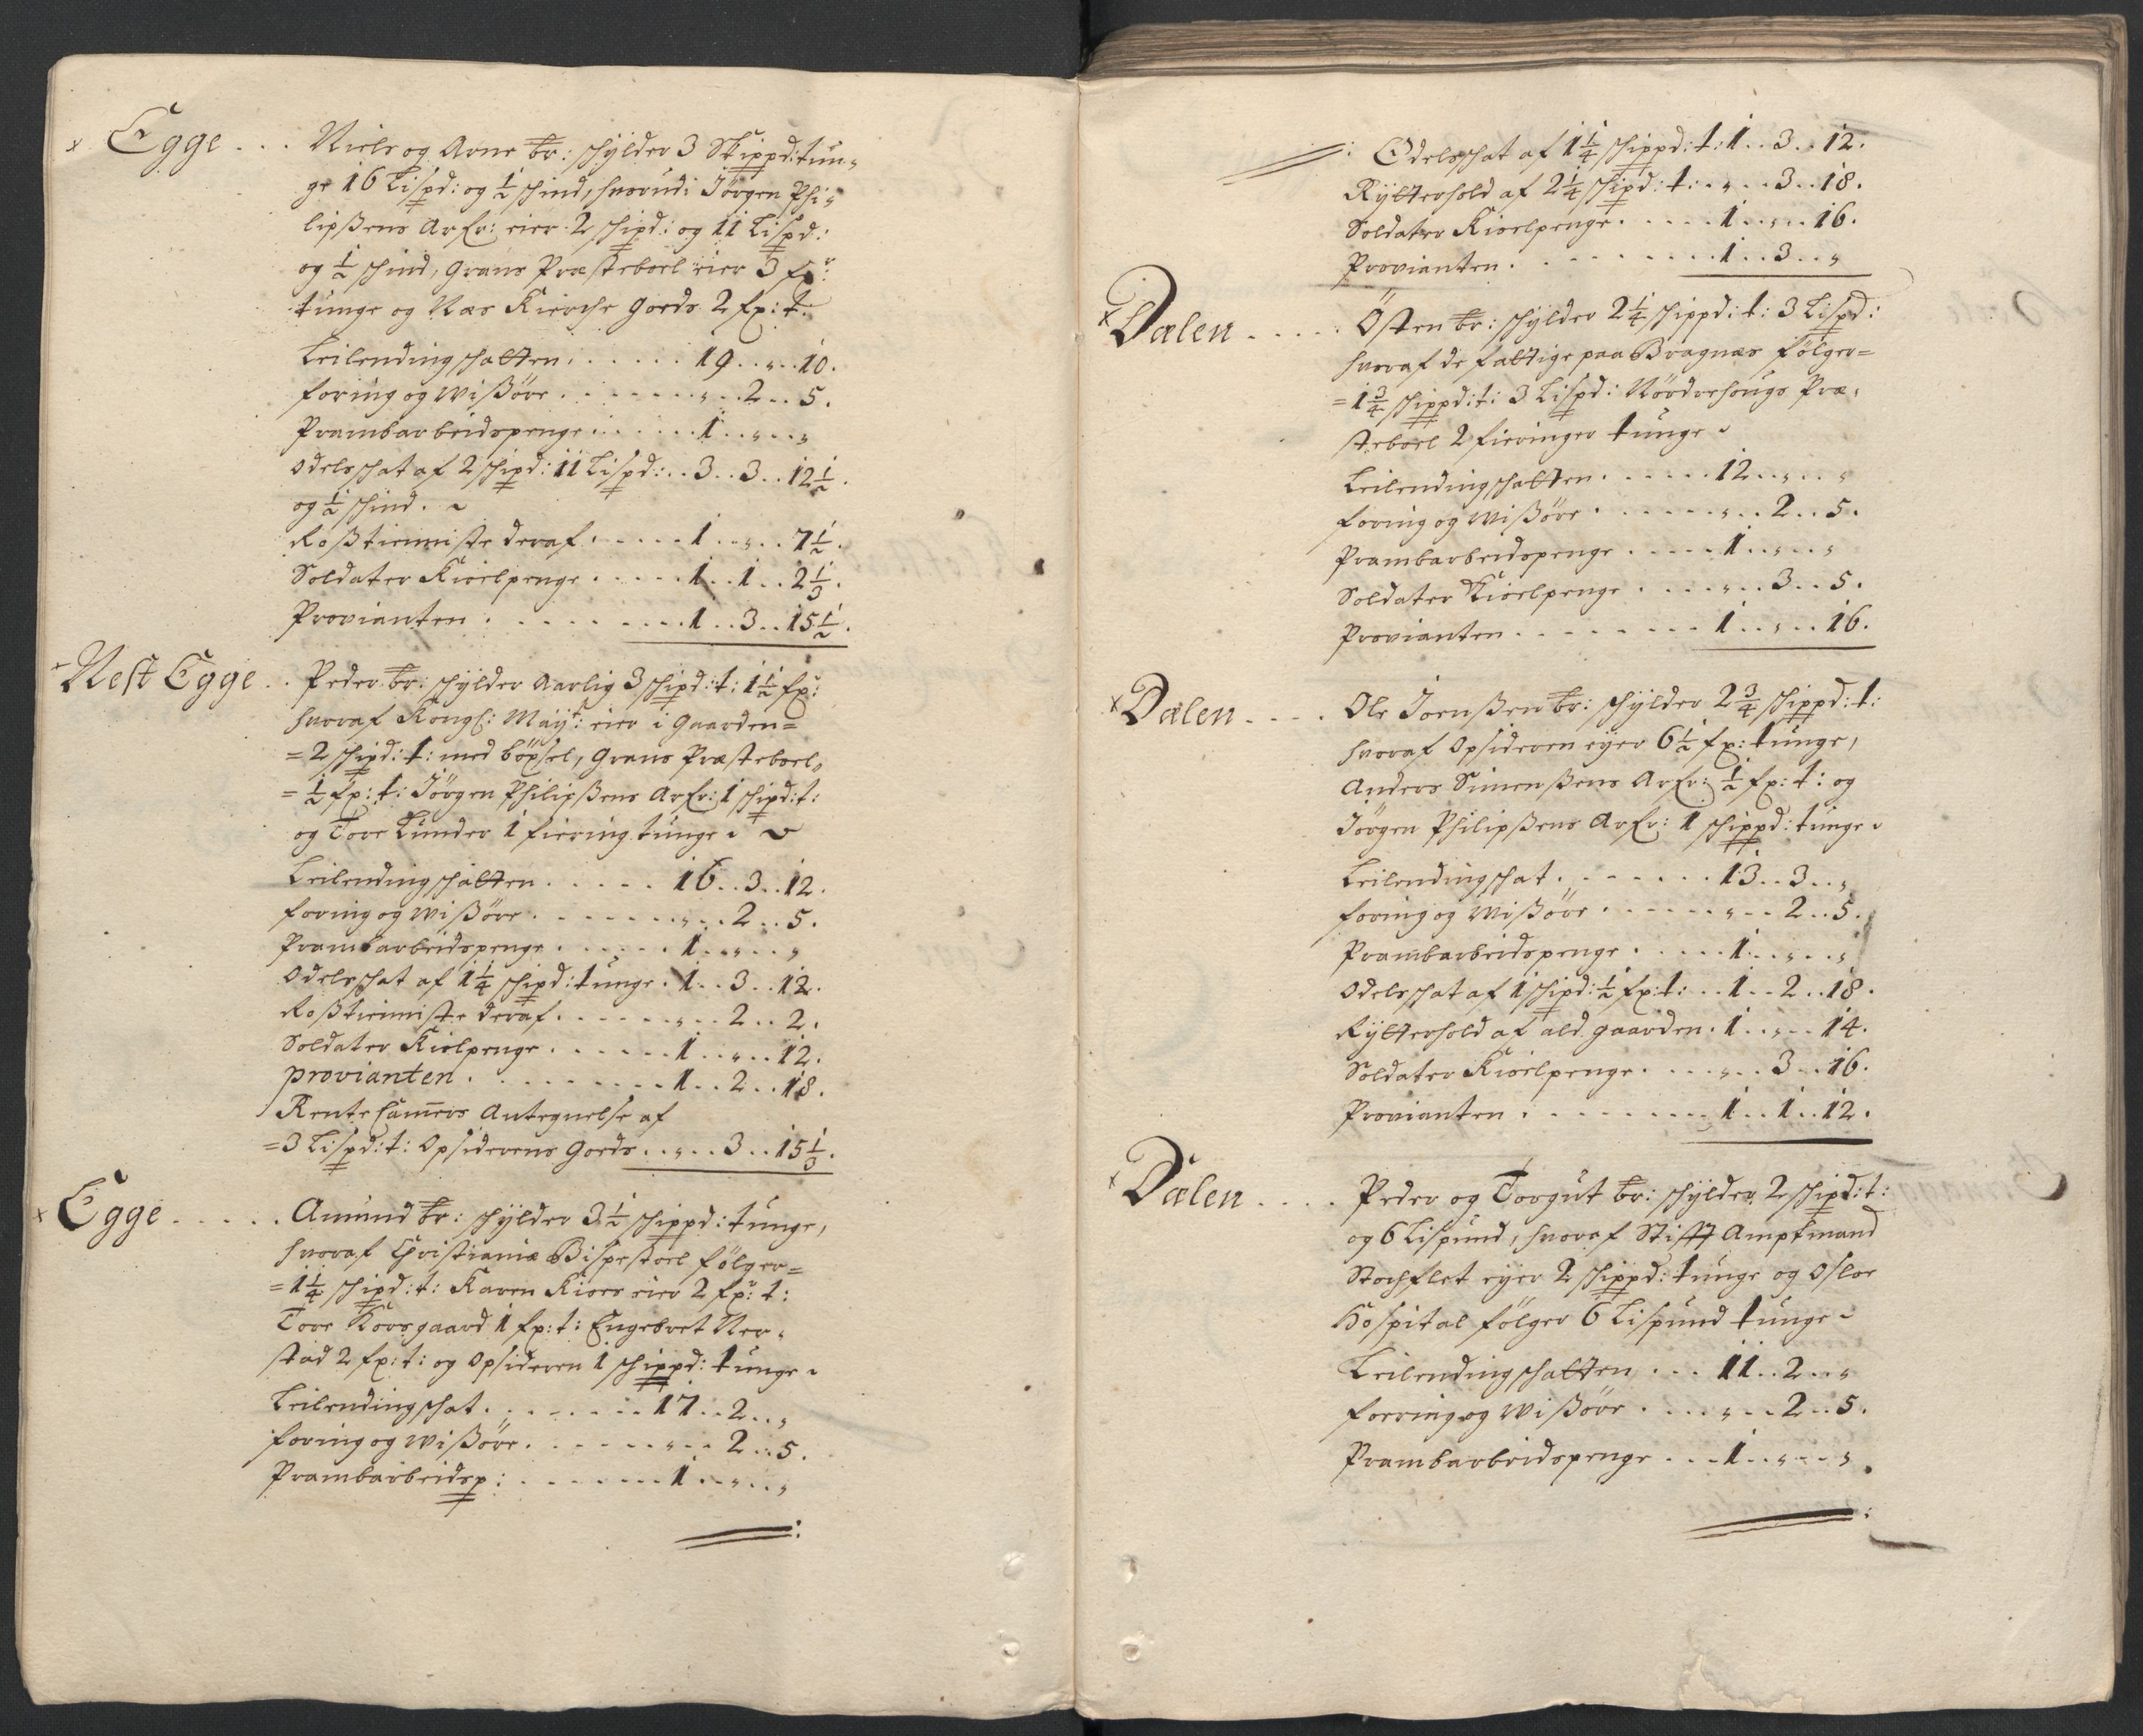 x Egge . . . Niels og Arne br: schÿlder 3 Skippd: tun=
ge 16 Lispd: og ½ schind, hvorudi Jörgen Phi=
lipßens Arfr: eier 2 schipd: og 11 Lispd:
og ½ schind, Grans Præsteboel eier 3 fr:
tunge og Næs Kierche goeds 2 fr: t:
Leilendingschatten . . . . . 19 . . „ . . 10.
foring og Wißöre . . . . . . . „ . . 2 . . 5.
Prambarbeidspenge . . . . . 1 . . „ . . „
Odelsschat af 2 schipd: 11 Lispd: . . 3 . . 3 . . 12½.
og ½ schind.
Roßtienniste deraf . . . . . 1 . . „ . . 7½.
Soldater Kioelpenge . . . . . 1 . . 1 . . 2⅓.
Provianten . . . . . . . . . 1 . . 3 . . 15½.
x Nest Egge . . Peder br: schÿlder Aarlig 3 schipd: t: 1½ fr:
hvoraf Kongl: Maÿt: eier i gaarden=
=2 schipd: t: med böxsel, Grans Præsteboel,
=½ fr: t: Jörgen Philipßens Arfr: 1 schipd: t:
og Tore Lunder 1 fiering tunge
Leilendingschatten . . . . . 16 . . 3 . . 12.
foring og Wißöre . . . . . . . „ . . 2 . . 5.
Prambarbeidspenge . . . . . 1 . . „ . . „
Odelsschat af 1¼ schipd: tunge . 1 . . 3 . . 12.
Roßtienniste deraf . . . . . . „ . . 2 . . 2.
Soldater Kiolpenge . . . . . . 1 . . „ . . 12.
provianten . . . . . . . . . 1 . . 2 . . 18.
Rente Camers Antegnelse af
=3 Lispd: t: Opsiderens goeds . . „ . . 3 . . 15⅓.
x Egge . . . . . Amund br: schÿlder 3½ schippd: tunge,
hvoraf Christianiæ Bispestoel fölger=
=1¼ schipd: t: Karen Kiers eier 2 fr: t:
Tore Korsgaard 1 fr: t: Engebret Ner=
stad 2 fr: t: og Opsideren 1 schippd: tunge
Leilendingschat . . . . . . . 17 . . 2 . . „
foring og Wißöre . . . . . . „ . . 2 . . 5.
Prambarbeidsp: . . . . . . . 1 . . „ . . „
Odelsschat af 1¼ schippd: t: 1 . . 3 . . 12.
Rÿtterhold af 2¼ schipd: t: . . „ . . 3 . . 18.
Soldater Kioelpenge . . . . . 1 . . „ . . 16.
Provianten . . . . . . . . . 1 . . 3 . . „
x Dalen . . . . . Östen br: schÿlder 2¼ schippd: t: 3 Lispd:
hvoraf de fattige paa Bragnæs fölger=
=1¾ schippd: t: 3 Lispd: Nördrehougs Præ=
steboel 2 fieringer tunge
Leilendingschatten . . . . . 12 . . „ . . „
foring og Wißöre . . . . . . „ . . 2 . . 5.
Prambarbeidspenge . . . . . 1 . . „ . . „
Soldater Kioelpenge . . . . „ . . 3 . . 5.
Provianten . . . . . . . . 1 . . „ . . 16.
x Dalen . . . . Ole Joenßen br: schÿlder 2¾ schippd: t:
hvoraf Opsideren eÿer 6½ fr: tunge,
Anders Simenßens Arfr: ½ fr: t: og
Jörgen Philipßens Arfr: 1 schippd: tunge
Leilendingschat . . . . . . . 13 . . 3 . . „
foring og Wißöre . . . . . . „ . . 2 . . 5.
Prambarbeidspenge . . . . . 1 . . „ . . „
Odelsschat af 1 schipd: ½ fr: t: . . 1 . . 2 . . 18.
Rÿtterhold af ald gaarden . 1 . . „ . . 14.
Soldater Kioelpenge . . . . „ . . 3 . . 16.
Provianten . . . . . . . . . 1 . . 1 . . 12.
x Dalen . . . . Peder og Torgut br: schÿlder 2 schipd: t:
og 6 Lispund, hvoraf Stifft Amptmand
Stochflet eÿer 2 schippd: tunge og Osloe
Hospital fölger 6 Lispund tunge
Leilendingschatten . . . 11 . . 2 . . „
forring og Wißöre . . . . „ . . 2 . . 5.
Prambarbeidspenge . . . 1 . . „ . . „